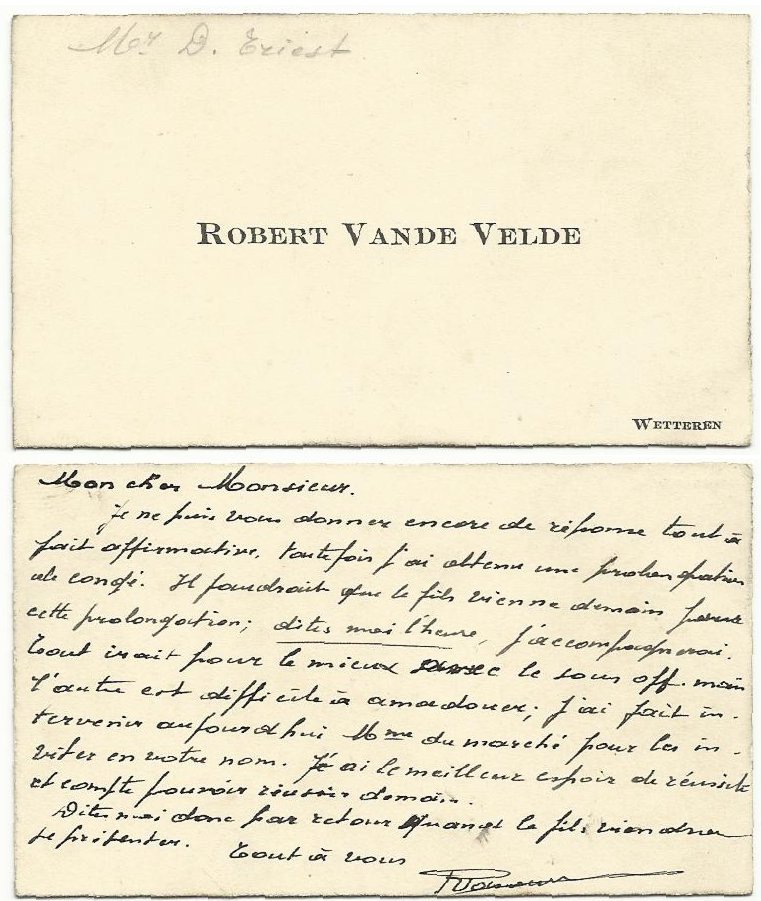 Mr D. Triest
ROBERT VANDE VELDE
WETTEREN
Mon cher Monsieur.
Je ne puis vous donner encore de réponse tout à
fait affirmative, toutefois j'ai obtenu une prolongation
de congé. Il faudrait que le fils vienne demain pour
cette prolongation; dites moi l'heure, j'accompagnerai.
Tout irait pour le mieux avec le sous off. mais
l'autre est difficile à amadouer; j'ai fait in-
tervenir aujourdhui Mme du marché pour les in-
viter en votre nom. J'ai le meilleur espoir de réussite
et compte pouvoir réussir demain.
Dites moi donc par retour quand le fils viendra
se présenter.
Tout à vous